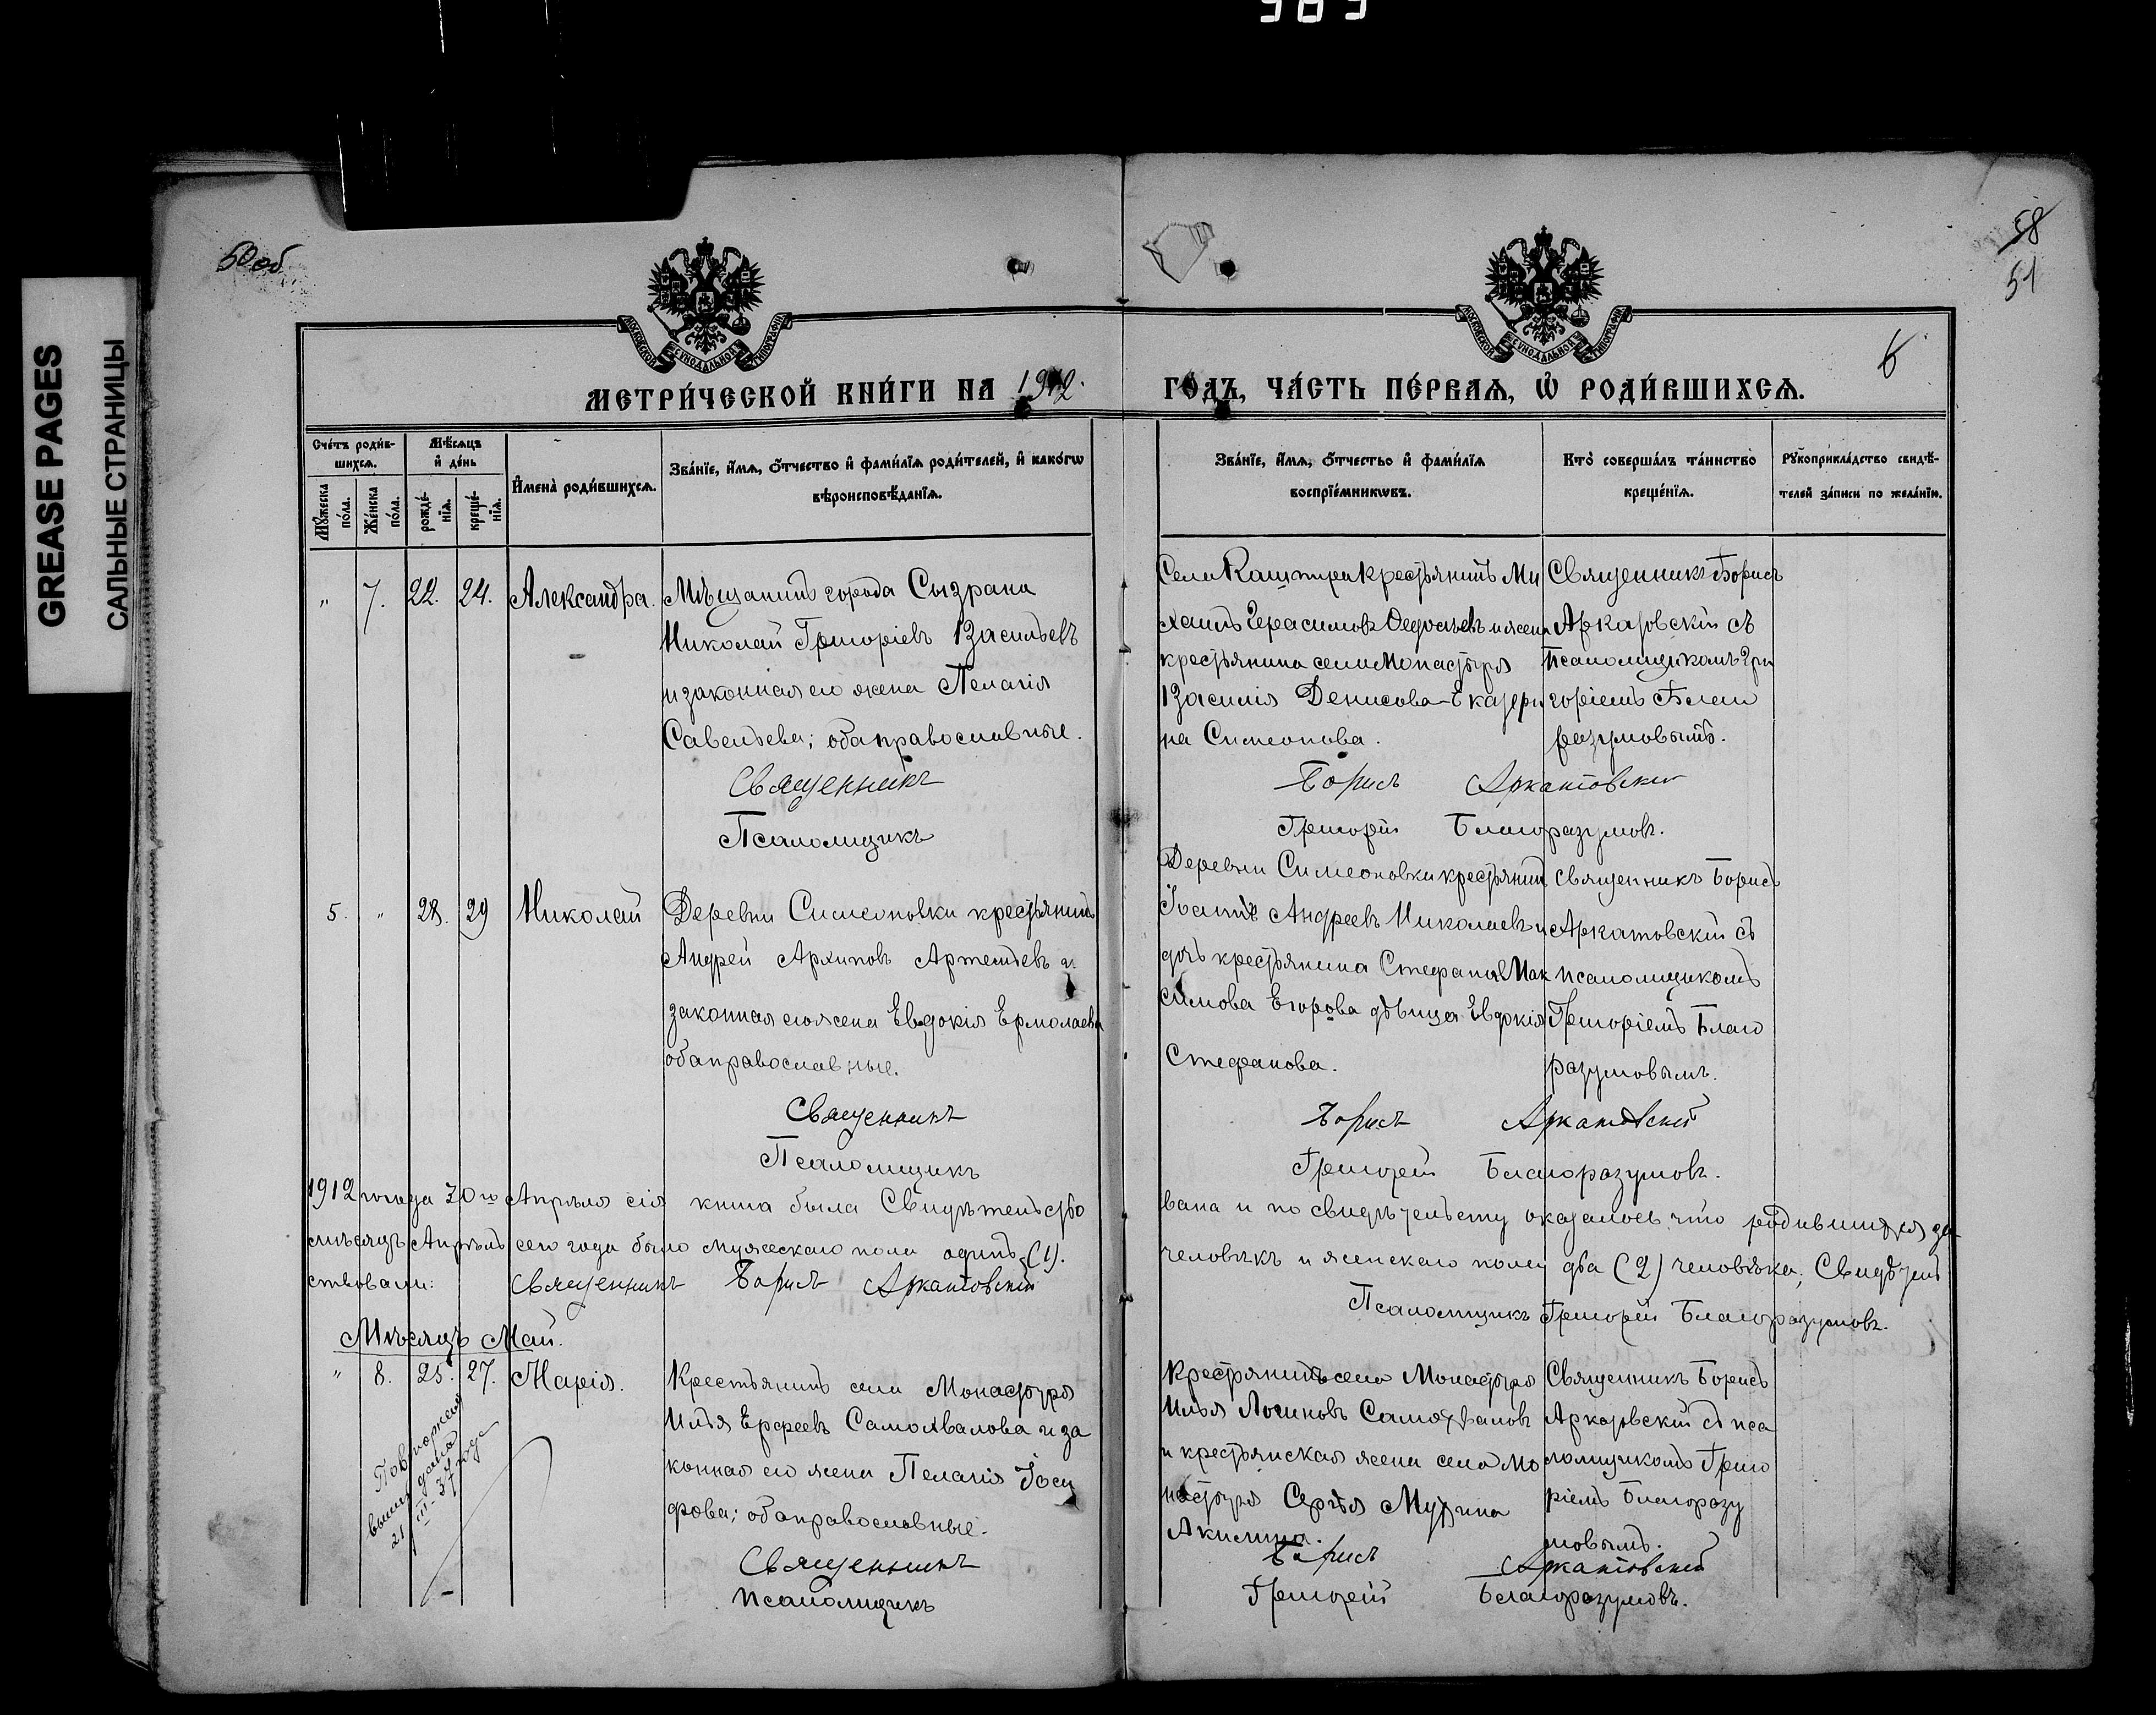 50 об
58
51
6
GREASE PAGES
САЛЬНЫЕ СТРАНИЦЫ
МОСКОВСКОЙ СѴНОДАЛЬНОЙ ТИПОГРАФІИ
МОСКОВСКОЙ СѴНОДАЛЬНОЙ ТИПОГРАФІИ
МЕТРИ́ЧЕСКОЙ КНИ́ГИ НА 1912.
ГО́ДЪ, ЧА́СТЬ ПЕ́РВАѦ, Ѡ҆ РОДИ́ВШИХСѦ.
Сче́тъ роди́в-
шихсѧ.
Мꙋ́жеска по́ла.
Же́нска по́ла.
Мѣ́сѧцъ
и҆ де́нь
рожде́-
нїѧ.
креще́-
нїѧ.
И҆мена̀ роди́вшихсѧ.
Зва́нїе, и҆́мѧ, ѻ҆́тчество и҆ фами́лїѧ роди́телей, и҆ како́гѡ
вѣроисповѣ́данїѧ.
Зва́нїе, и҆́мѧ, ѻ҆́тчество и҆ фами́лїѧ
воспрїе́мникѡвъ.
Кто̀ соверша́лъ та́инство
креще́нїѧ.
Рꙋкоприкла́дство свидѣ́-
телей за́писи по жела́нїю.
" 7. 22. 24. Александра.
Мѣщанинъ города Сызрана
Николай Григоріевъ Васильевъ
и законная его жена Пелагія
Савельева; оба православные.
Священникъ
Псаломщикъ
Села Кашпира крестьянинъ Ми
хаилъ Герасимовъ Федосѣевъ и жена
крестьянина села Монастыря
Василія Денисова Екатери
на Симеонова.
Священникъ Борисъ
Аркатовскій съ
псаломщикомъ Гри
горіемъ Благо
разумовымъ.
Борисъ Аркатовскій
Григорій Благоразумовъ.
5. " 28. 29 Николай
Деревни Симеоновки крестьянинъ
Андрей Архиповъ Артемьевъ и
законная его жена Евдокія Ермолаева
оба православные.
Священникъ
Псаломщикъ
Деревни Симеоновки крестьянинъ
Іоаннъ Андреевъ Николаевъ и
дочь крестьянина Стефана Мак
симова Егорова дѣвица Евдокія
Стефанова.
Священникъ Борисъ
Аркатовскій съ
псаломщикомъ
Григоріемъ Благо
разумовымъ.
Борисъ Аркатовскій
Григорій Благоразумовъ.
1912 года 30го Апрѣля сія книга была Свидѣтельство
вана и по свидѣтельству оказалось что родившихся за
мѣсяцъ Апрѣль сего года было мужескаго пола одинъ (1).
человѣкъ и женскаго пола два (2) человѣка; Свидѣтель
ствовали: Священникъ Борисъ Аркатовскій
Псаломщикъ Григорій Благоразумовъ.
Мѣсяцъ Май.
" 8. 25. 27. Марія.
21 III - 37 года
Крестьянинъ села Монастыря
Илья Ерфеевъ Самохвалова и за
конная его жена Пелагія Іоси
фова; оба православные.
Священникъ
Псаломщикъ
Крестьянинъ села Монастыря
Илья Логиновъ Самохваловъ
и крестьянская жена села Мо
настыря Сергѣя
Акилина.
Священникъ Борисъ
Аркатовскій съ пса
ломщикомъ Григо
ріемъ Благоразу
мовымъ.
Борисъ Аркатовскій
Григорій Благоразумовъ.